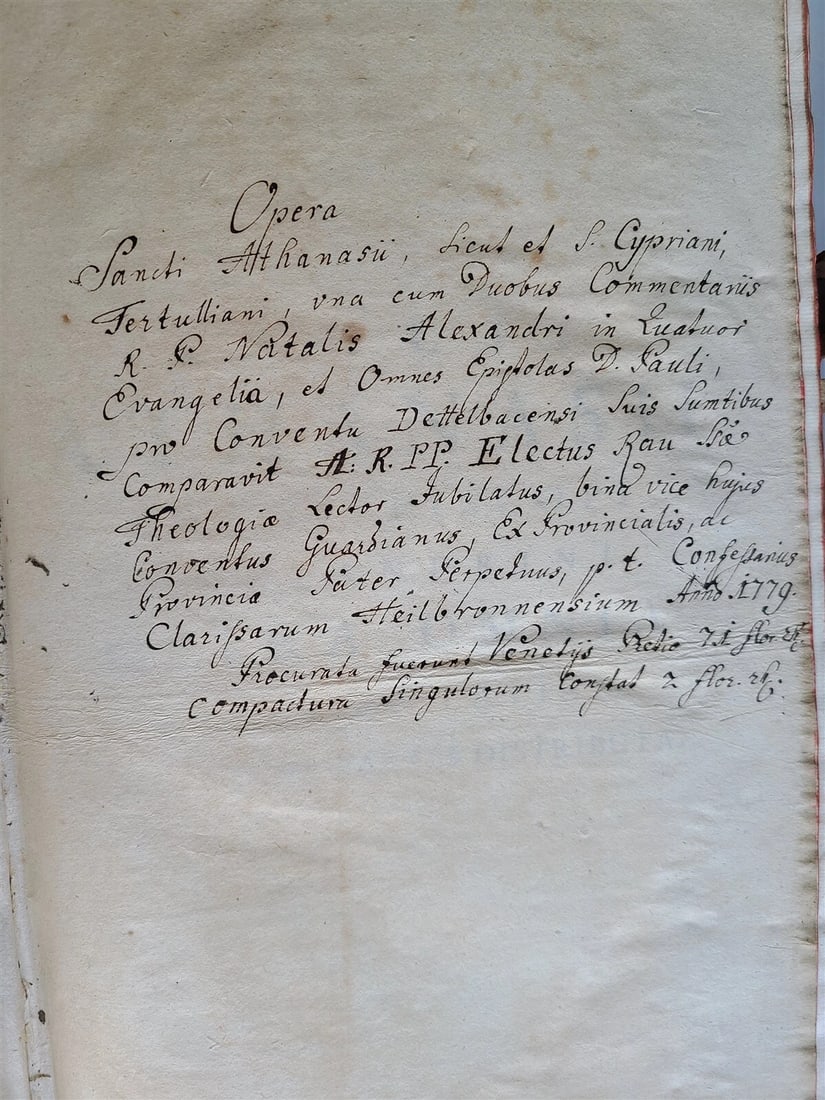 Opera
Sancti Athanasii, sicut et S. Cypriani,
Tertulliani, vna cum Duobus Commentariis
R. P. Natalis Alexandri in Quatuor
Evangelia, et Omnes Epistolas D. Pauli,
pro Conventu Dettelbacensi suis sumtibus
Comparavit A: R. PP. Electus Rau SSæ
Theologiæ Lector Jubilatus, bina vice hujus
Conventus Guardianus, ExProvincialis, ac
Provinciæ Pater Perpetuus, p. t. Confessarius
Clarissarum Heilbronnensium Anno 1779.
Procurata fuerunt Venetijs Pretio 71 flor.
Compactura singulorum constat 2 flor.